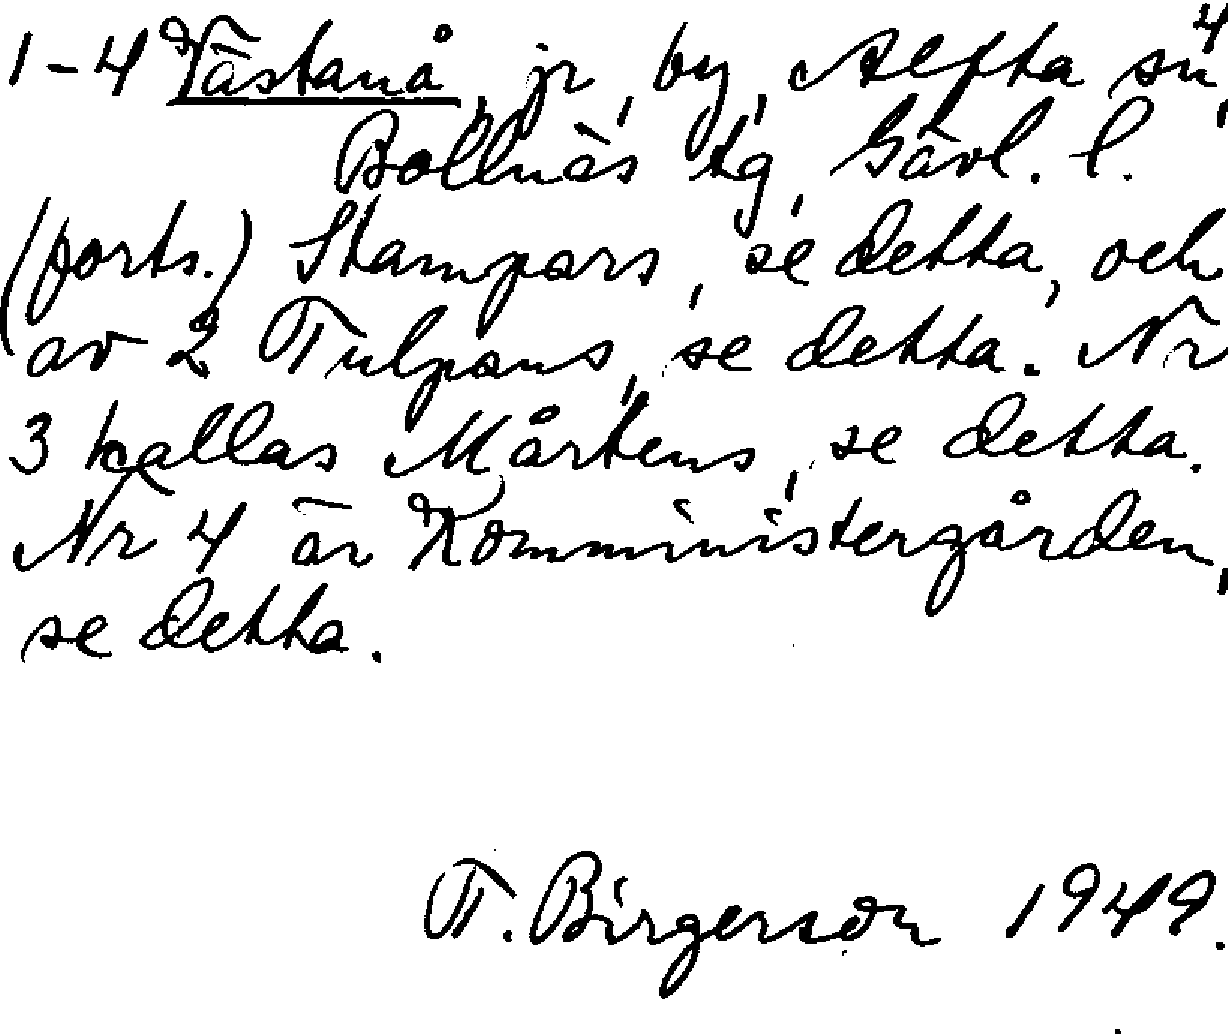 4
1-4 Västanå, jr, by, Alfta sn,
Bollnäs tg, Gävl. l.
(forts.) Stampars, se detta, och
av 2 Tulpans, se detta. Nr
3 kallas Mårtens, se detta.
Nr 4 är Komministergården,
se detta.
T. Birgerson 1949.